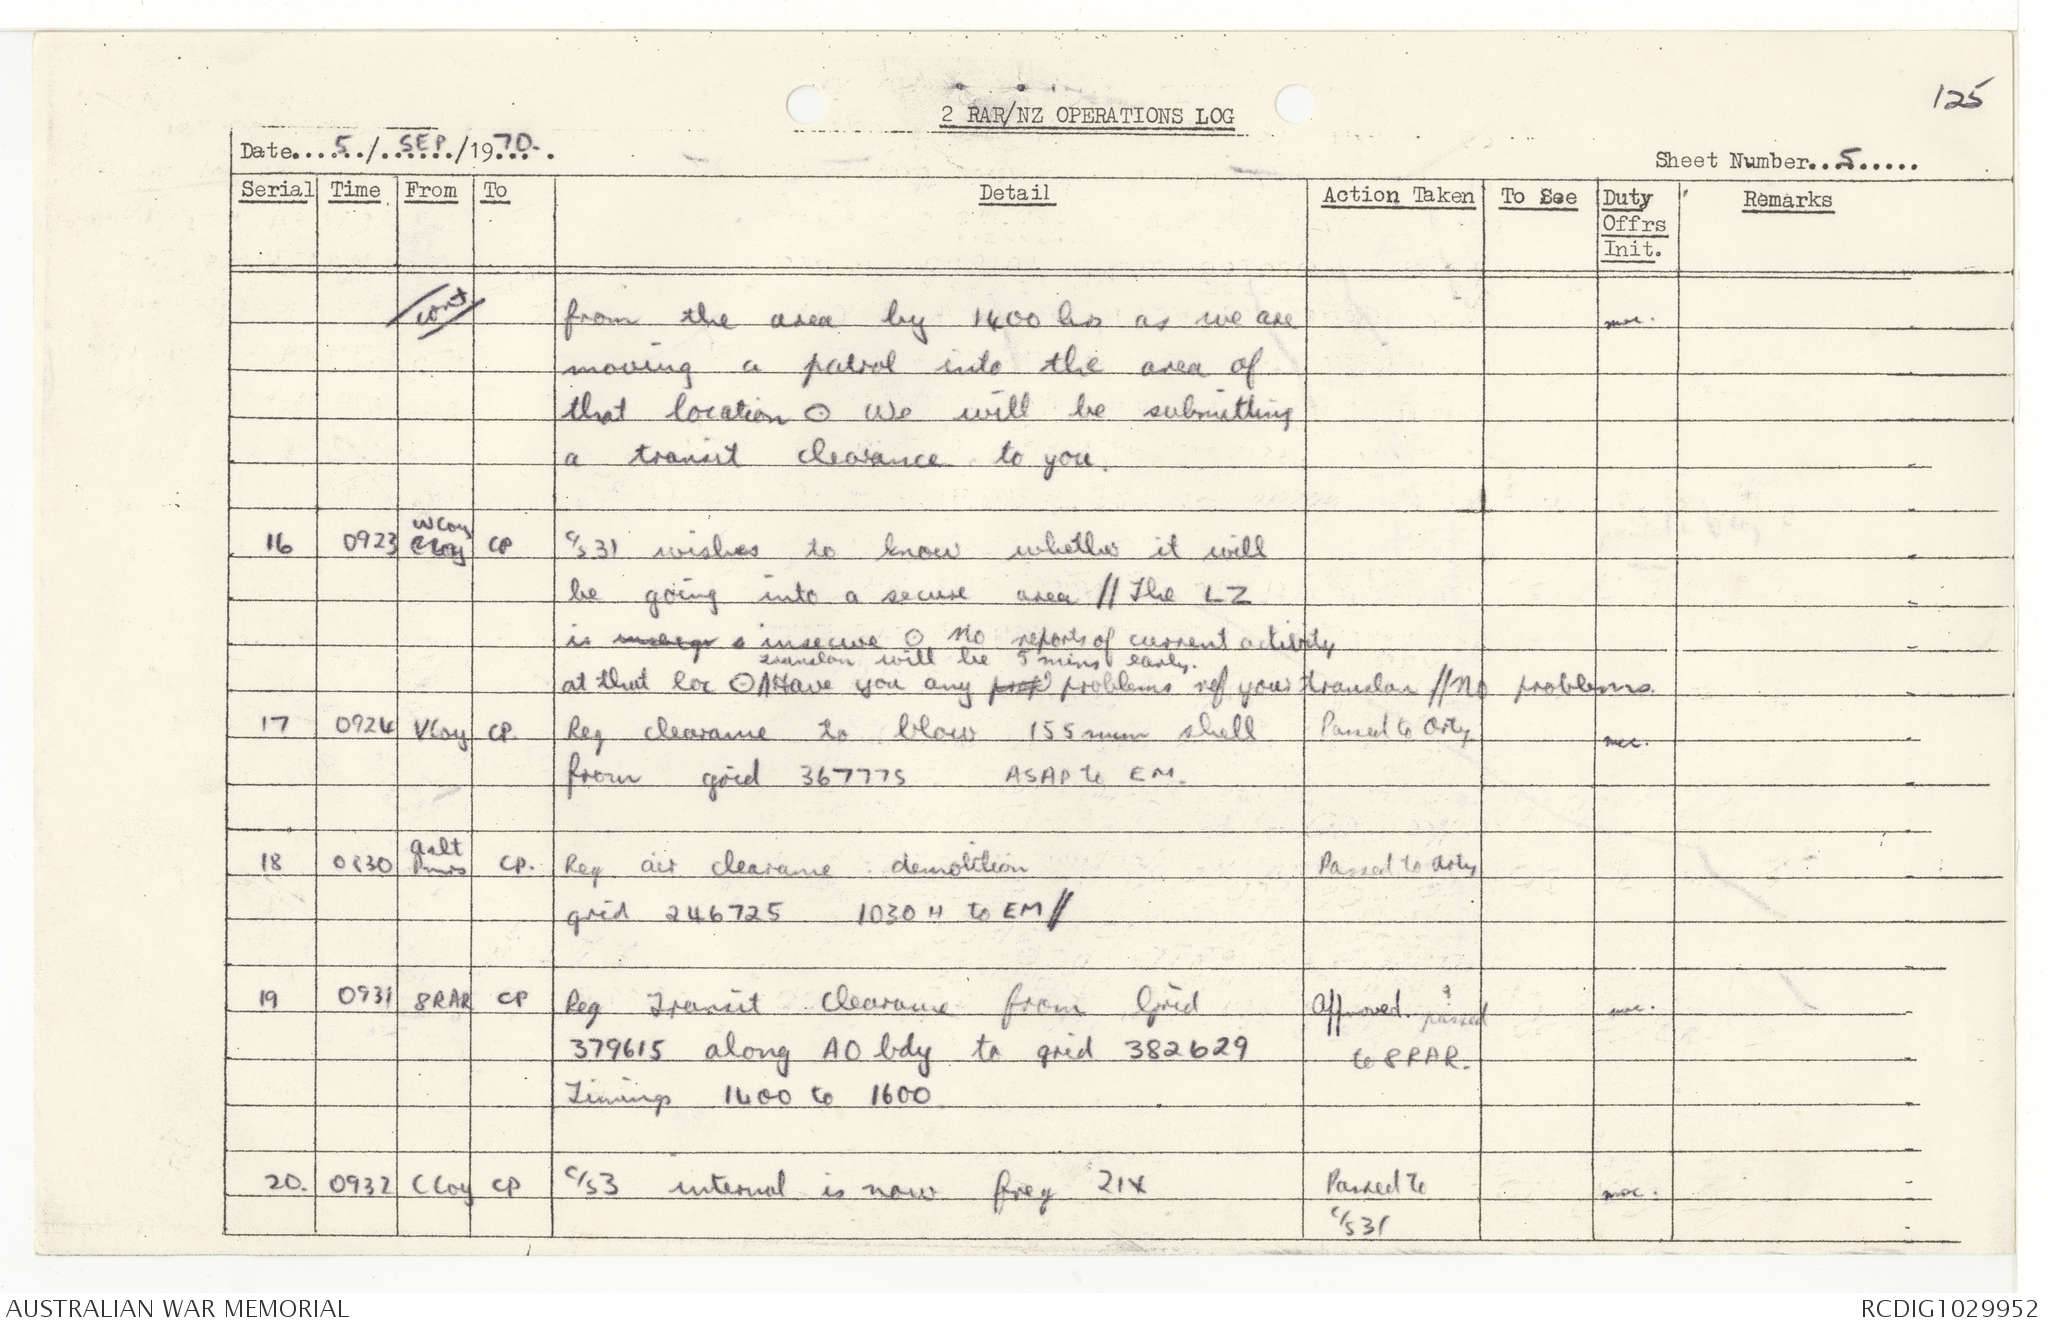 125
2 RAR/NZ OPERATIONS LOG
Date.....5./.SEP./1970.
Sheet Number..5.....
Serial Time From To Detail Action Taken To See Duty Offrs Init. Remarks
/cont/ from the area by 1400 hrs as we are
moving a patrol into the area of
that location ⊙ We will be submitting
a transit clearance to you.
16 0923 WCoy CCoy CP C/S 31 wishes to know whether it will
be going into a secure area // The LZ
is insecure ⊙ No reports of current activity
translan will be 5 mins early.
at that loc ⊙ Have you any problems ref your translan // No problems.
17 0924 VCoy CP. Req clearance to blow 155mm shell Passed to Arty
from grid 367775 ASAP to EM.
18 0830 Aslt Pnrs CP. Req air clearance demolition Passed to Arty
grid 246725 1030 H to EM //
19 0931 8RAR CP Req Transit Clearance from Grid Approved. & passed
379615 along AO bdy to grid 382629 to 8RAR.
Timings 1400 to 1600
20. 0932 CCoy CP C/S3 internal is now freq 21X Passed to
C/S31
AUSTRALIAN WAR MEMORIAL
RCDIG1029952